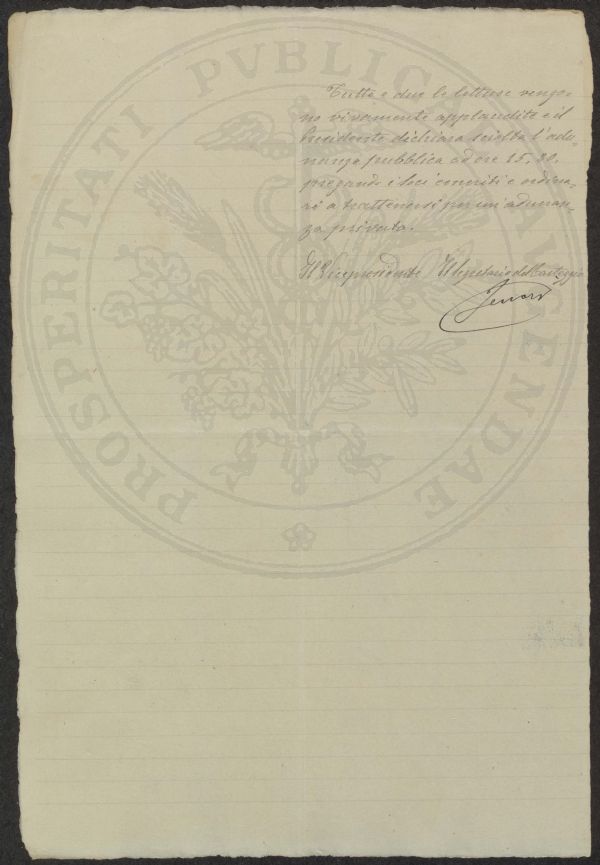 PROSPERITATI PVBLICAE AVGENDAE
Tutte e due le letture vengo-
no vivamente applaudite e il
Presidente dichiara sciolta l'adu-
nanza pubblica ad ore 15,30,
pregando i soci emeriti e ordina-
ri a trattenersi per un'adunan-
za privata.
Il Vicepresidente Il Segretario del Carteggio